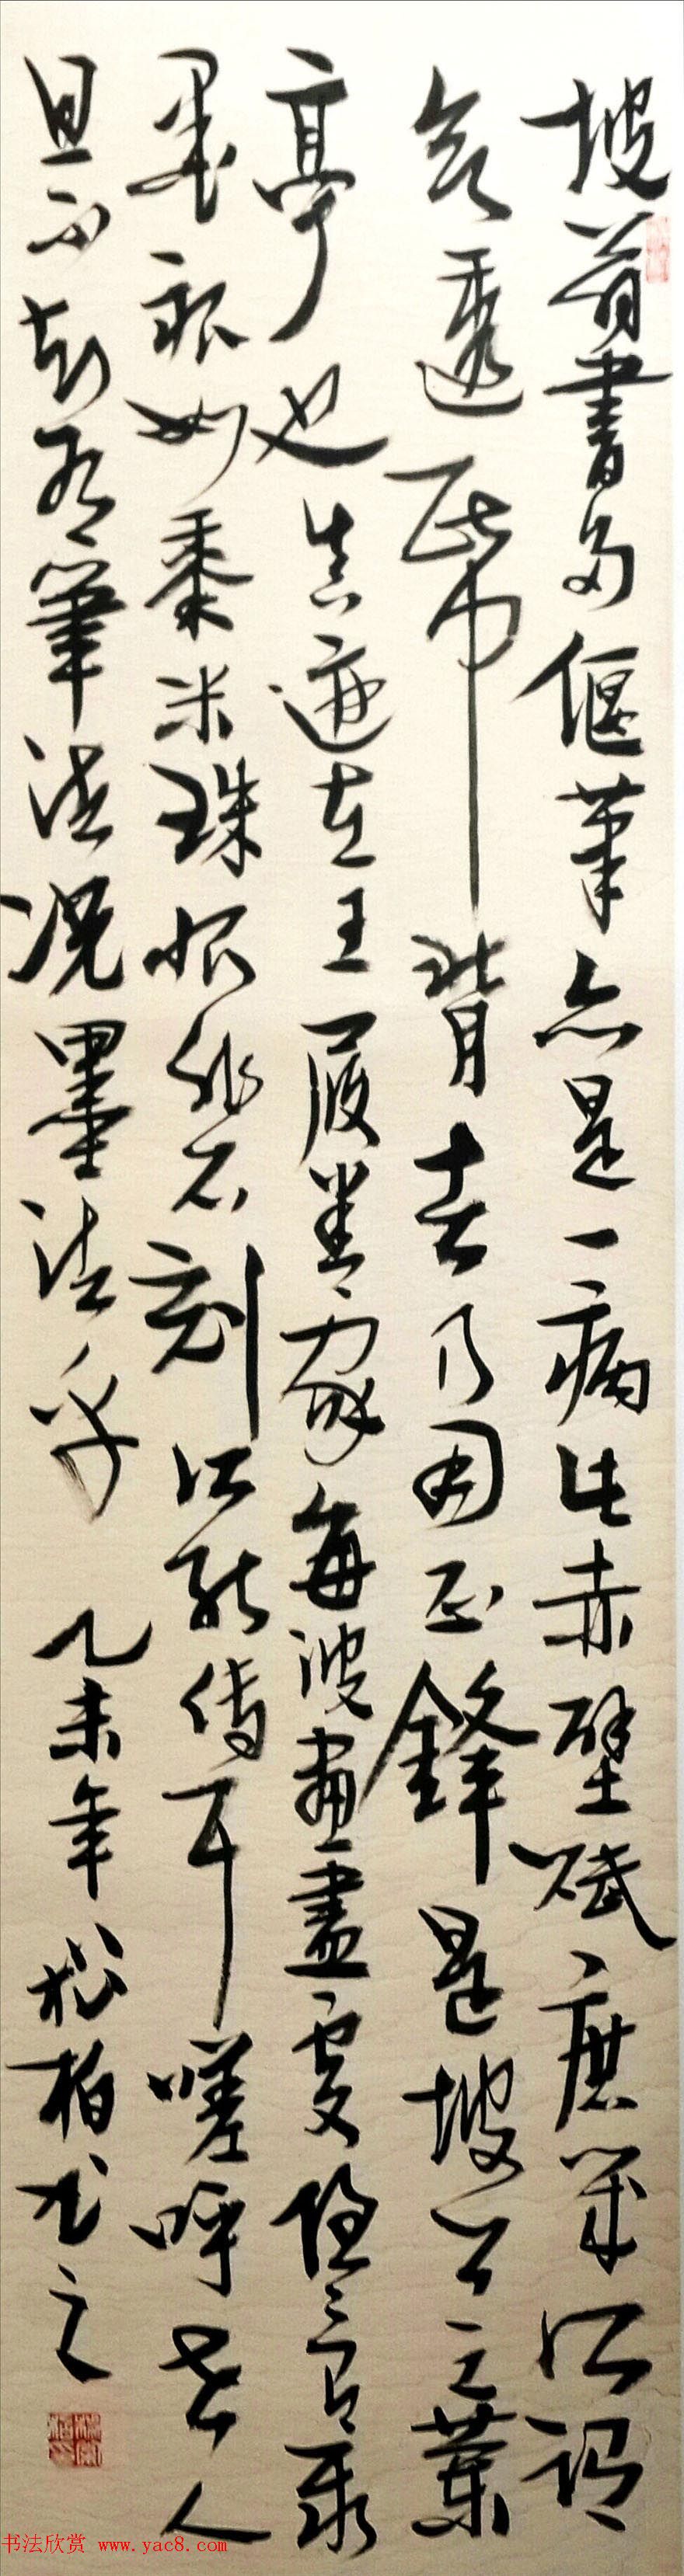 坡翁書多偃筆亦是一病此赤壁賦庶幾所謂
欲透紙背者乃用正鋒是坡公之蘭
亭也真迹在王履善家每波畫盡處隱隱有聚
墨痕如黍米珠恨非石刻所能傳耳嗟呼世人
且不知有筆法況墨法乎 乙未年松柏書之
书法欣赏 www.yac8.com